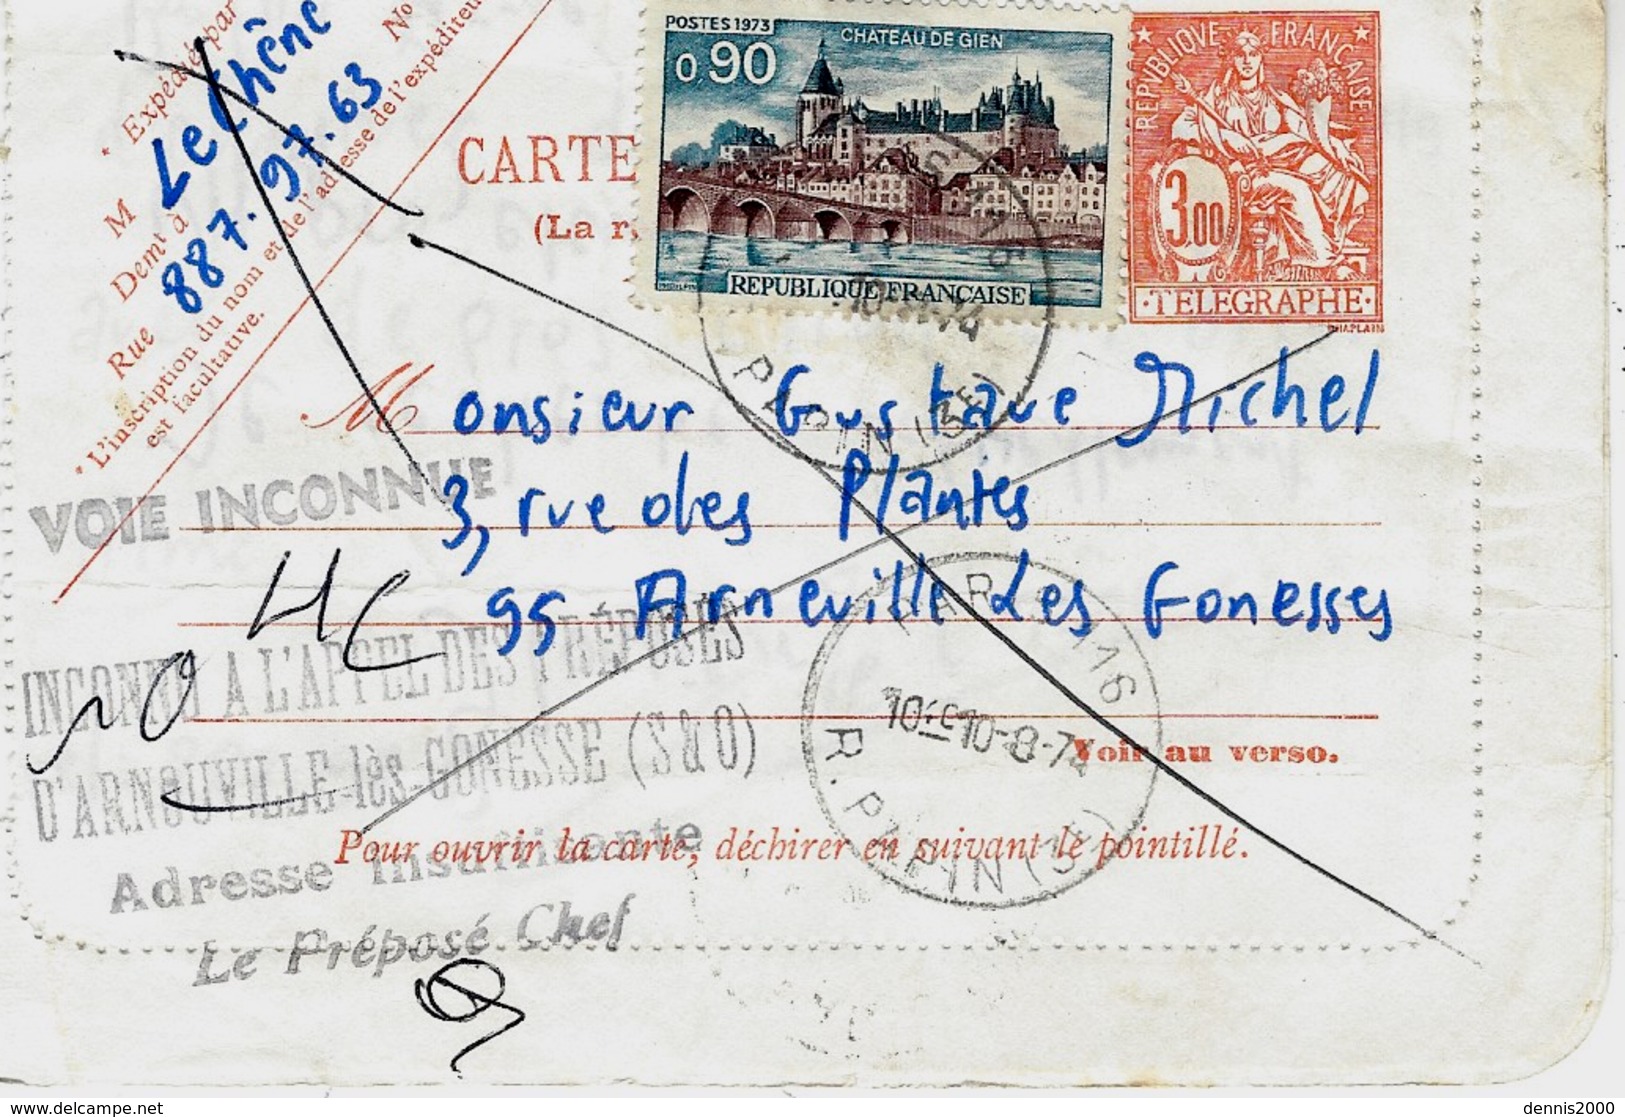 * Expédié par
M Le Chêne
Demt à
Rue 887.97.63 No
* L'inscription du nom et de l'adresse de l'expéditeur
est facultative.
POSTES 1973
0,90
CHATEAU DE GIEN
REPUBLIQUE FRANÇAISE
REPVBLIQVE FRANÇAISE
3.00
TELEGRAPHE
CHAPLAIN
CARTE
(La r
10 74
R. PAPIN (3E)
Monsieur Gustave Michel
VOIE INCONNUE
3, rue des Plantes
95 Arneville les Gonesses
INCONNU A L'APPEL DES PRÉPOSÉS
D'ARNOUVILLE-lès-GONESSE (S&O)
PARIS 116
10H10 10-8-74
R. PAPIN (3E)
Voir au verso.
Pour ouvrir la carte, déchirer en suivant le pointillé.
Adresse insuffisante
Le Préposé Chef
delcampe.net
dennis2000